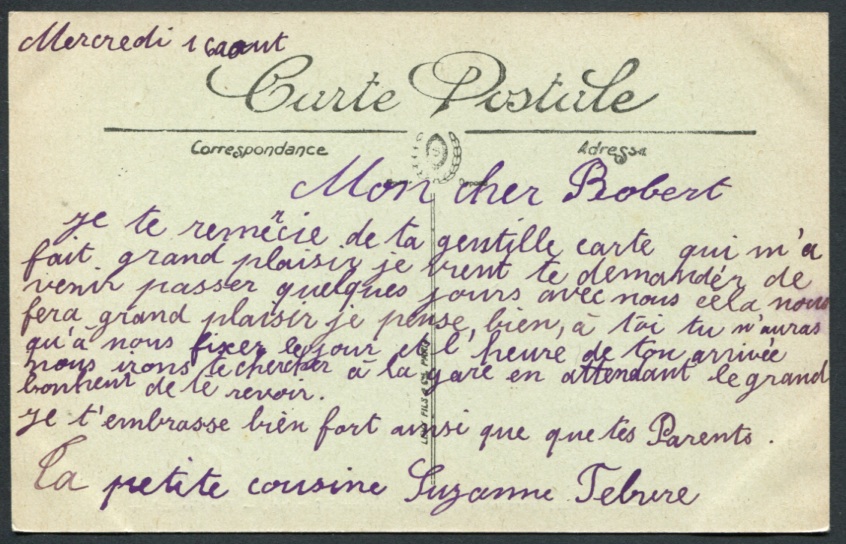 Mercredi 16 aout
Carte Postale
Correspondance Adresse
Mon cher Robert
je te remercie de ta gentille carte qui m'a
fait grand plaisir je vient te demander de
venir passer quelques jours avec nous cela nous
fera grand plaisir je pense bien, à toi tu n'auras
qu'à nous fixer le jour et l'heure de ton arrivée
nous irons te chercher à la gare en attendant le grand
bonheur de te revoir.
je t'embrasse bien fort ainsi que que tes Parents.
Ta petite cousine Suzanne